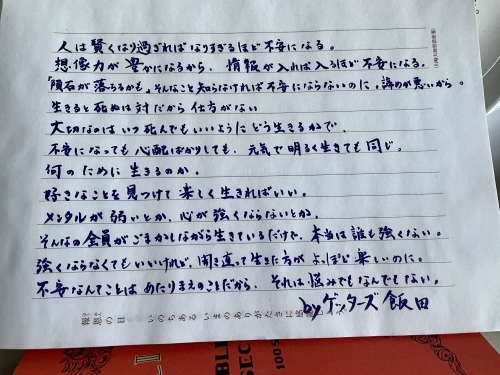 人は賢くなり過ぎればなりすぎるほど不安になる。
想像力が豊かになるから、情報が入れば入るほど不安になる。
「隕石が落ちるかも」そんなこと知らなければ不安にならないのに、諦めが悪いから。
生きると死ぬは対だから仕方がない
大切なのはいつ死んでもいいようにどう生きるかで、
不安になっても心配ばかりしても、元気で明るく生きても同じ。
何のために生きるのか。
好きなことを見つけて楽しく生きればいい。
メンタルが弱いとか、心が強くならないとか。
そんなの全員がごまかしながら生きているだけで、本当は誰も強くない。
強くならなくてもいいけれど、開き直って生きた方がよっぽど楽しいのに。
不安なんてことはあたりまえのことだから、それは悩みでもなんでもない。
byゲッターズ飯田
報恩の日 いのちあるいまのありがたさに感謝
LI
BLE
SEC
100S